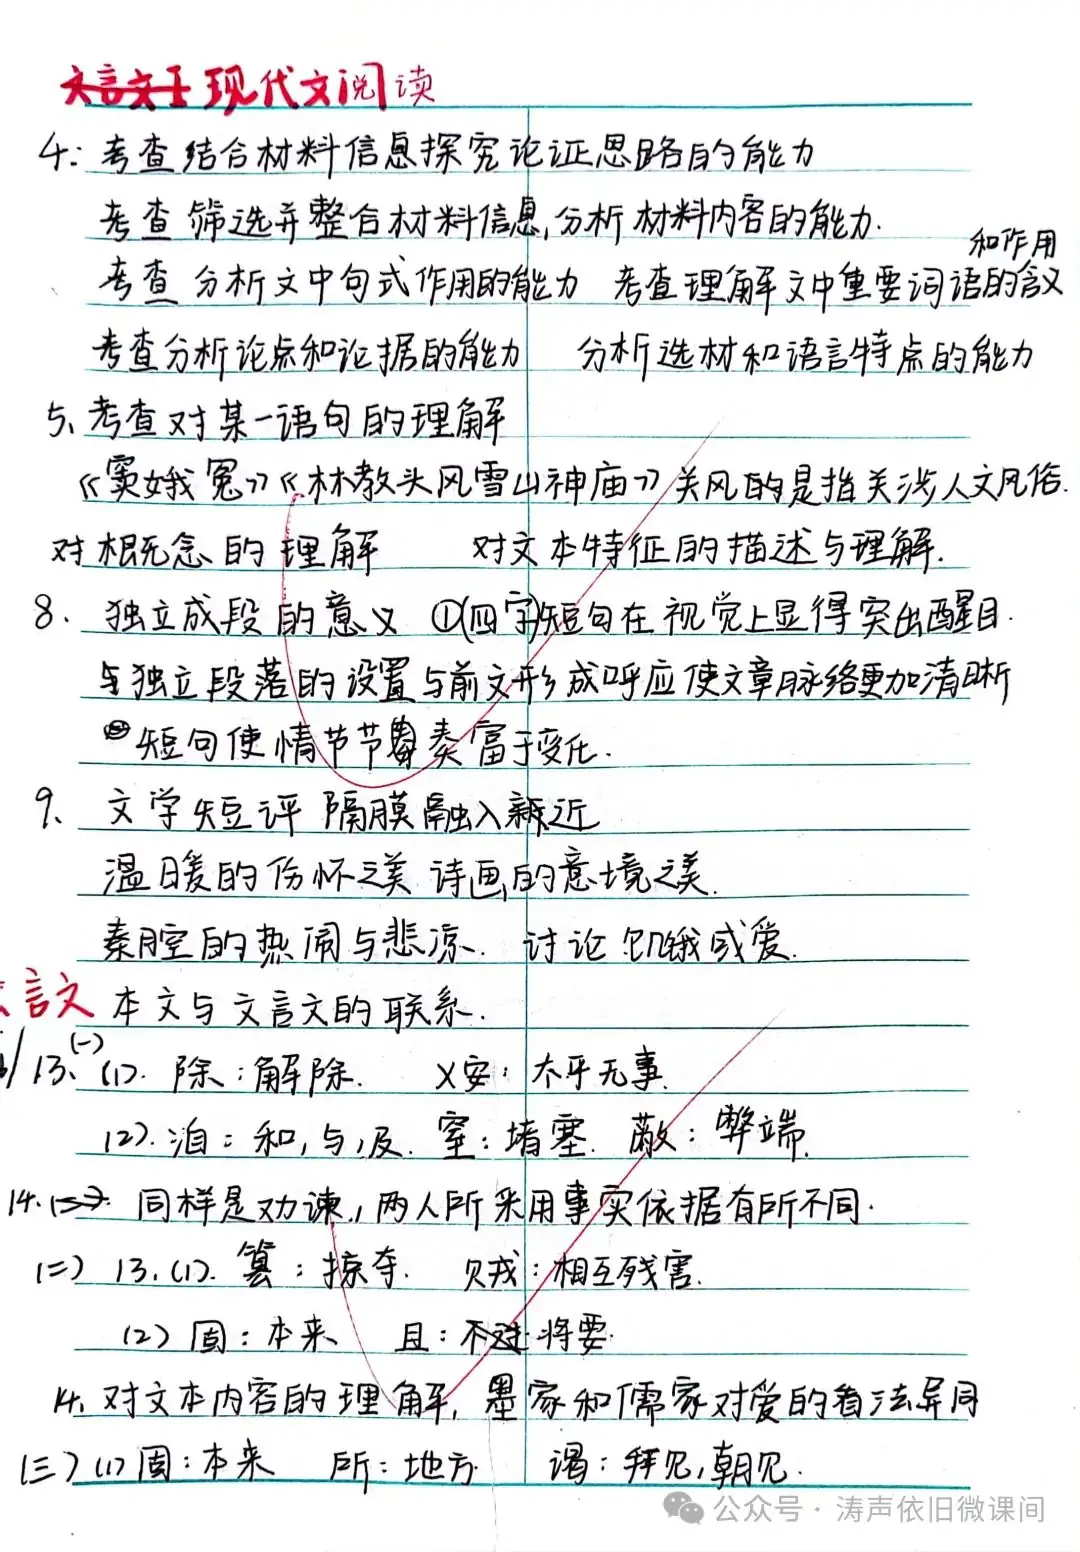 文言文 现代文阅读
4: 考查结合材料信息探究论证思路的能力
考查 筛选并整合材料信息,分析材料内容的能力.
和作用
考查 分析文中句式作用的能力 考查理解文中重要词语的含义
考查分析论点和论据的能力 分析选材和语言特点的能力
5、考查对某一语句的理解
《窦娥冤》《林教头风雪山神庙》关风的是指关涉人文风俗.
对概念的理解 对文本特征的描述与理解.
8. 独立成段的意义 ①(四字)短句在视觉上显得突出醒目.
与独立段落的设置与前文形成呼应使文章脉络更加清晰
②短句使情节节奏富于变化.
9、 文学短评 隔膜融入亲近
温暖的伤怀之美 诗画的意境之美.
秦腔的热闹与悲凉. 讨论饥饿或爱.
文言文 本文与文言文的联系.
13.(一)(1). 除:解除. 乂安:太平无事.
(2).洎:和,与,及. 窒:堵塞. 蔽:弊端.
14. 同样是劝谏,两人所采用事实依据有所不同.
(二) 13.(1). 篡:掠夺. 贼:相互残害.
(2) 固:本来 且:将要.
14. 对文本内容的理解, 墨家和儒家对爱的看法异同
(三)(1)固:本来 所:地方 谒:拜见,朝见.
公众号·涛声依旧微课间